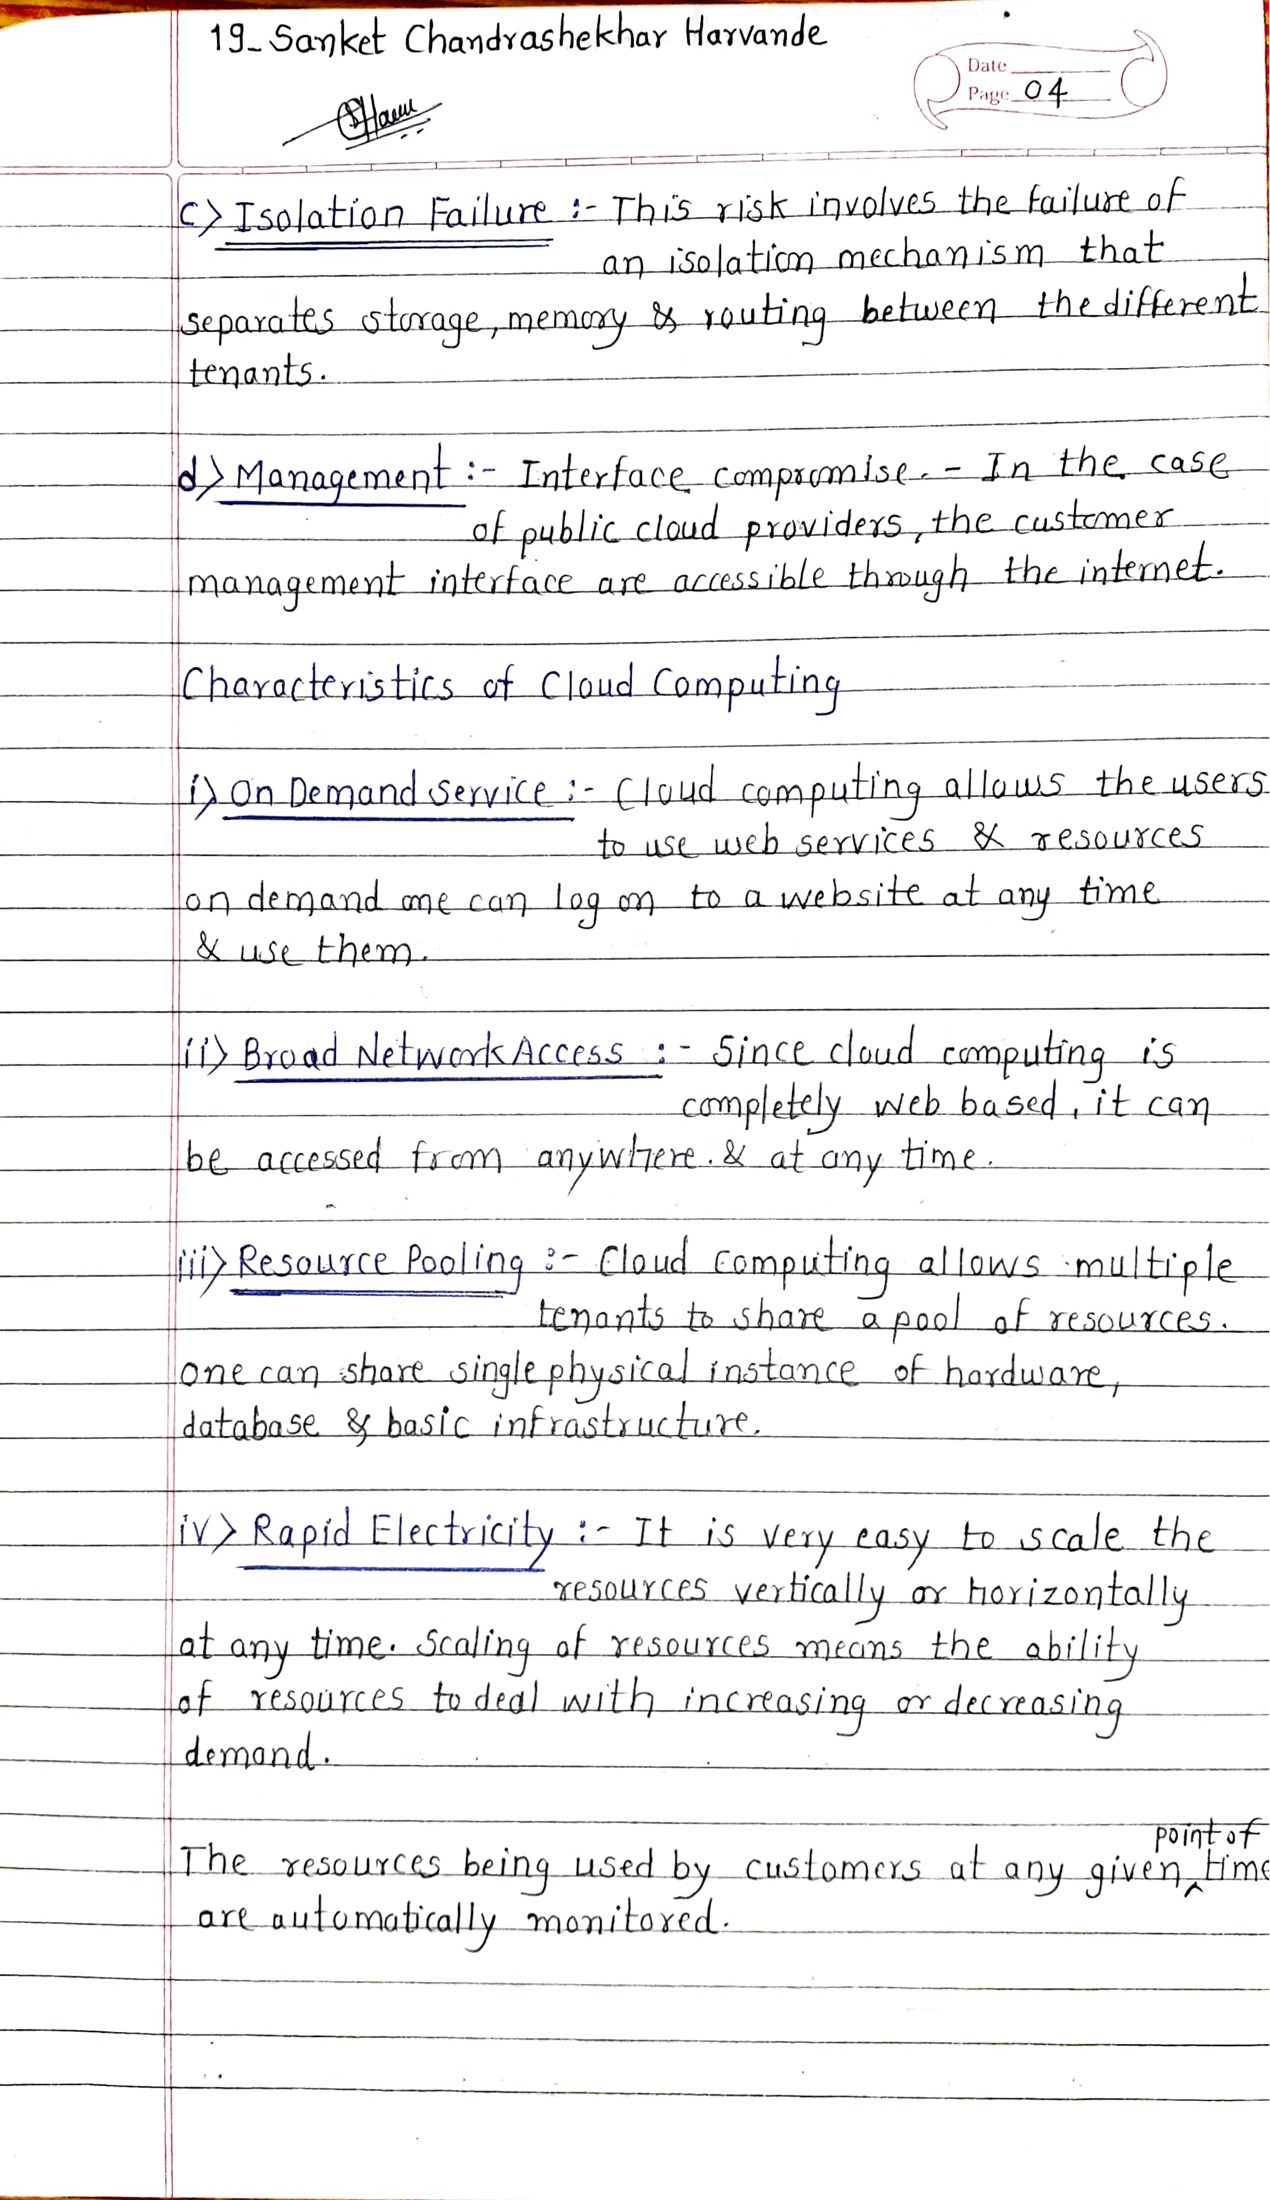 19_ Sanket Chandrashekhar Harvande
Date
Page 04
c) Isolation Failure :- This risk involves the failure of
an isolation mechanism that
separates storage, memory & routing between the different
tenants.
d) Management :- Interface compromise. - In the case
of public cloud providers, the customer
management interface are accessible through the internet.
Characteristics of Cloud Computing
i) On Demand Service :- Cloud computing allows the users
to use web services & resources
on demand one can log on to a website at any time
& use them.
ii) Broad Network Access :- Since cloud computing is
completely web based, it can
be accessed from anywhere. & at any time.
iii) Resource Pooling :- Cloud computing allows multiple
tenants to share a pool of resources.
one can share single physical instance of hardware,
database & basic infrastructure.
iv) Rapid Electricity :- It is very easy to scale the
resources vertically or horizontally
at any time. Scaling of resources means the ability
of resources to deal with increasing or decreasing
demand.
The resources being used by customers at any given point of time
are automatically monitored.